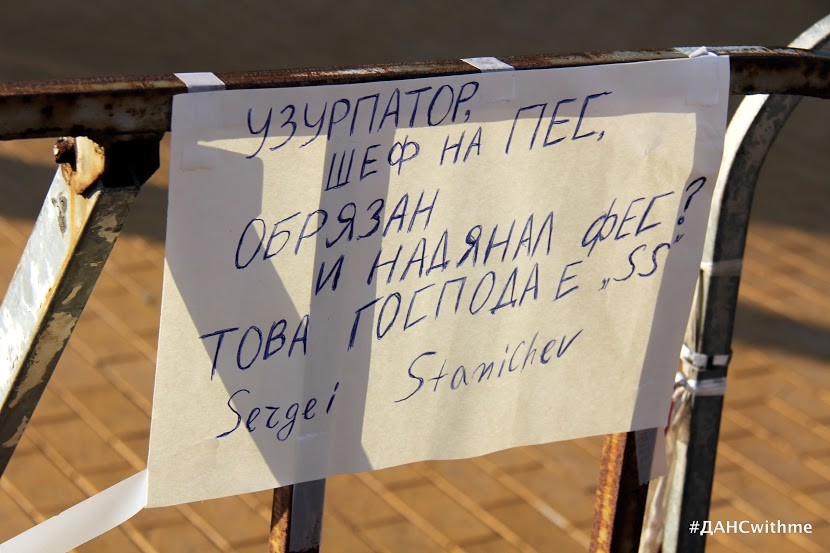 УЗУРПАТОР,
ШЕФ НА ПЕС,
ОБРЯЗАН
И НАДЯНАЛ ФЕС?
ТОВА ГОСПОДА Е „SS“
Sergei Stanichev
#ДАНСwithme